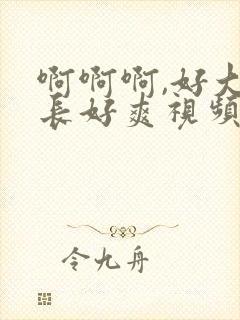 啊啊啊,好大
長好爽視頻
令九舟